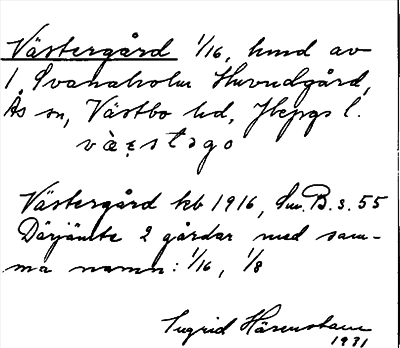 Västergård 1/16, lund av
1 Svanaholm Huvudgård,
Ås sn, Västbo hd, Jkpgs l.
Västergård kb 1916, Sm. B. s. 55
Därjämte 2 gårdar med sam-
ma namn: 1/16, 1/8
Ingrid Härenstam
1931